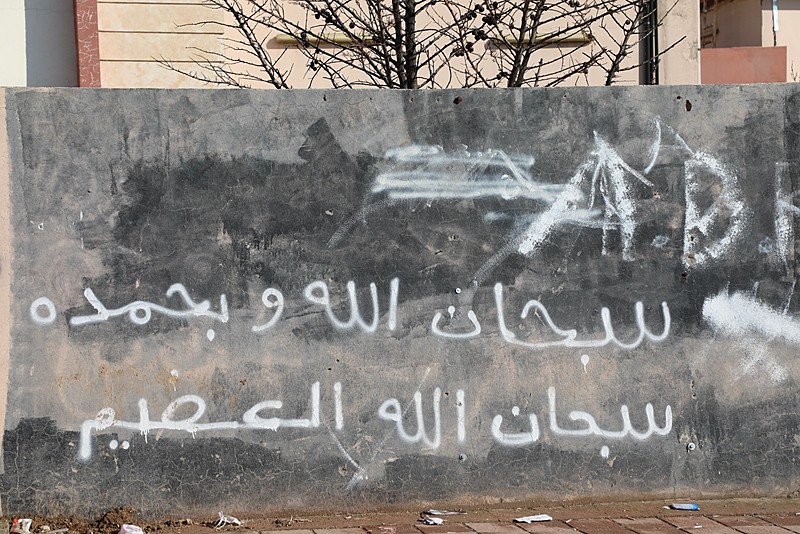 A.B
سبحان الله و بحمده
سبحان الله العصيم